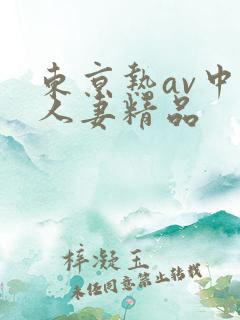 東京熱av中
人妻精品
梓凝玉
未经同意禁止转载